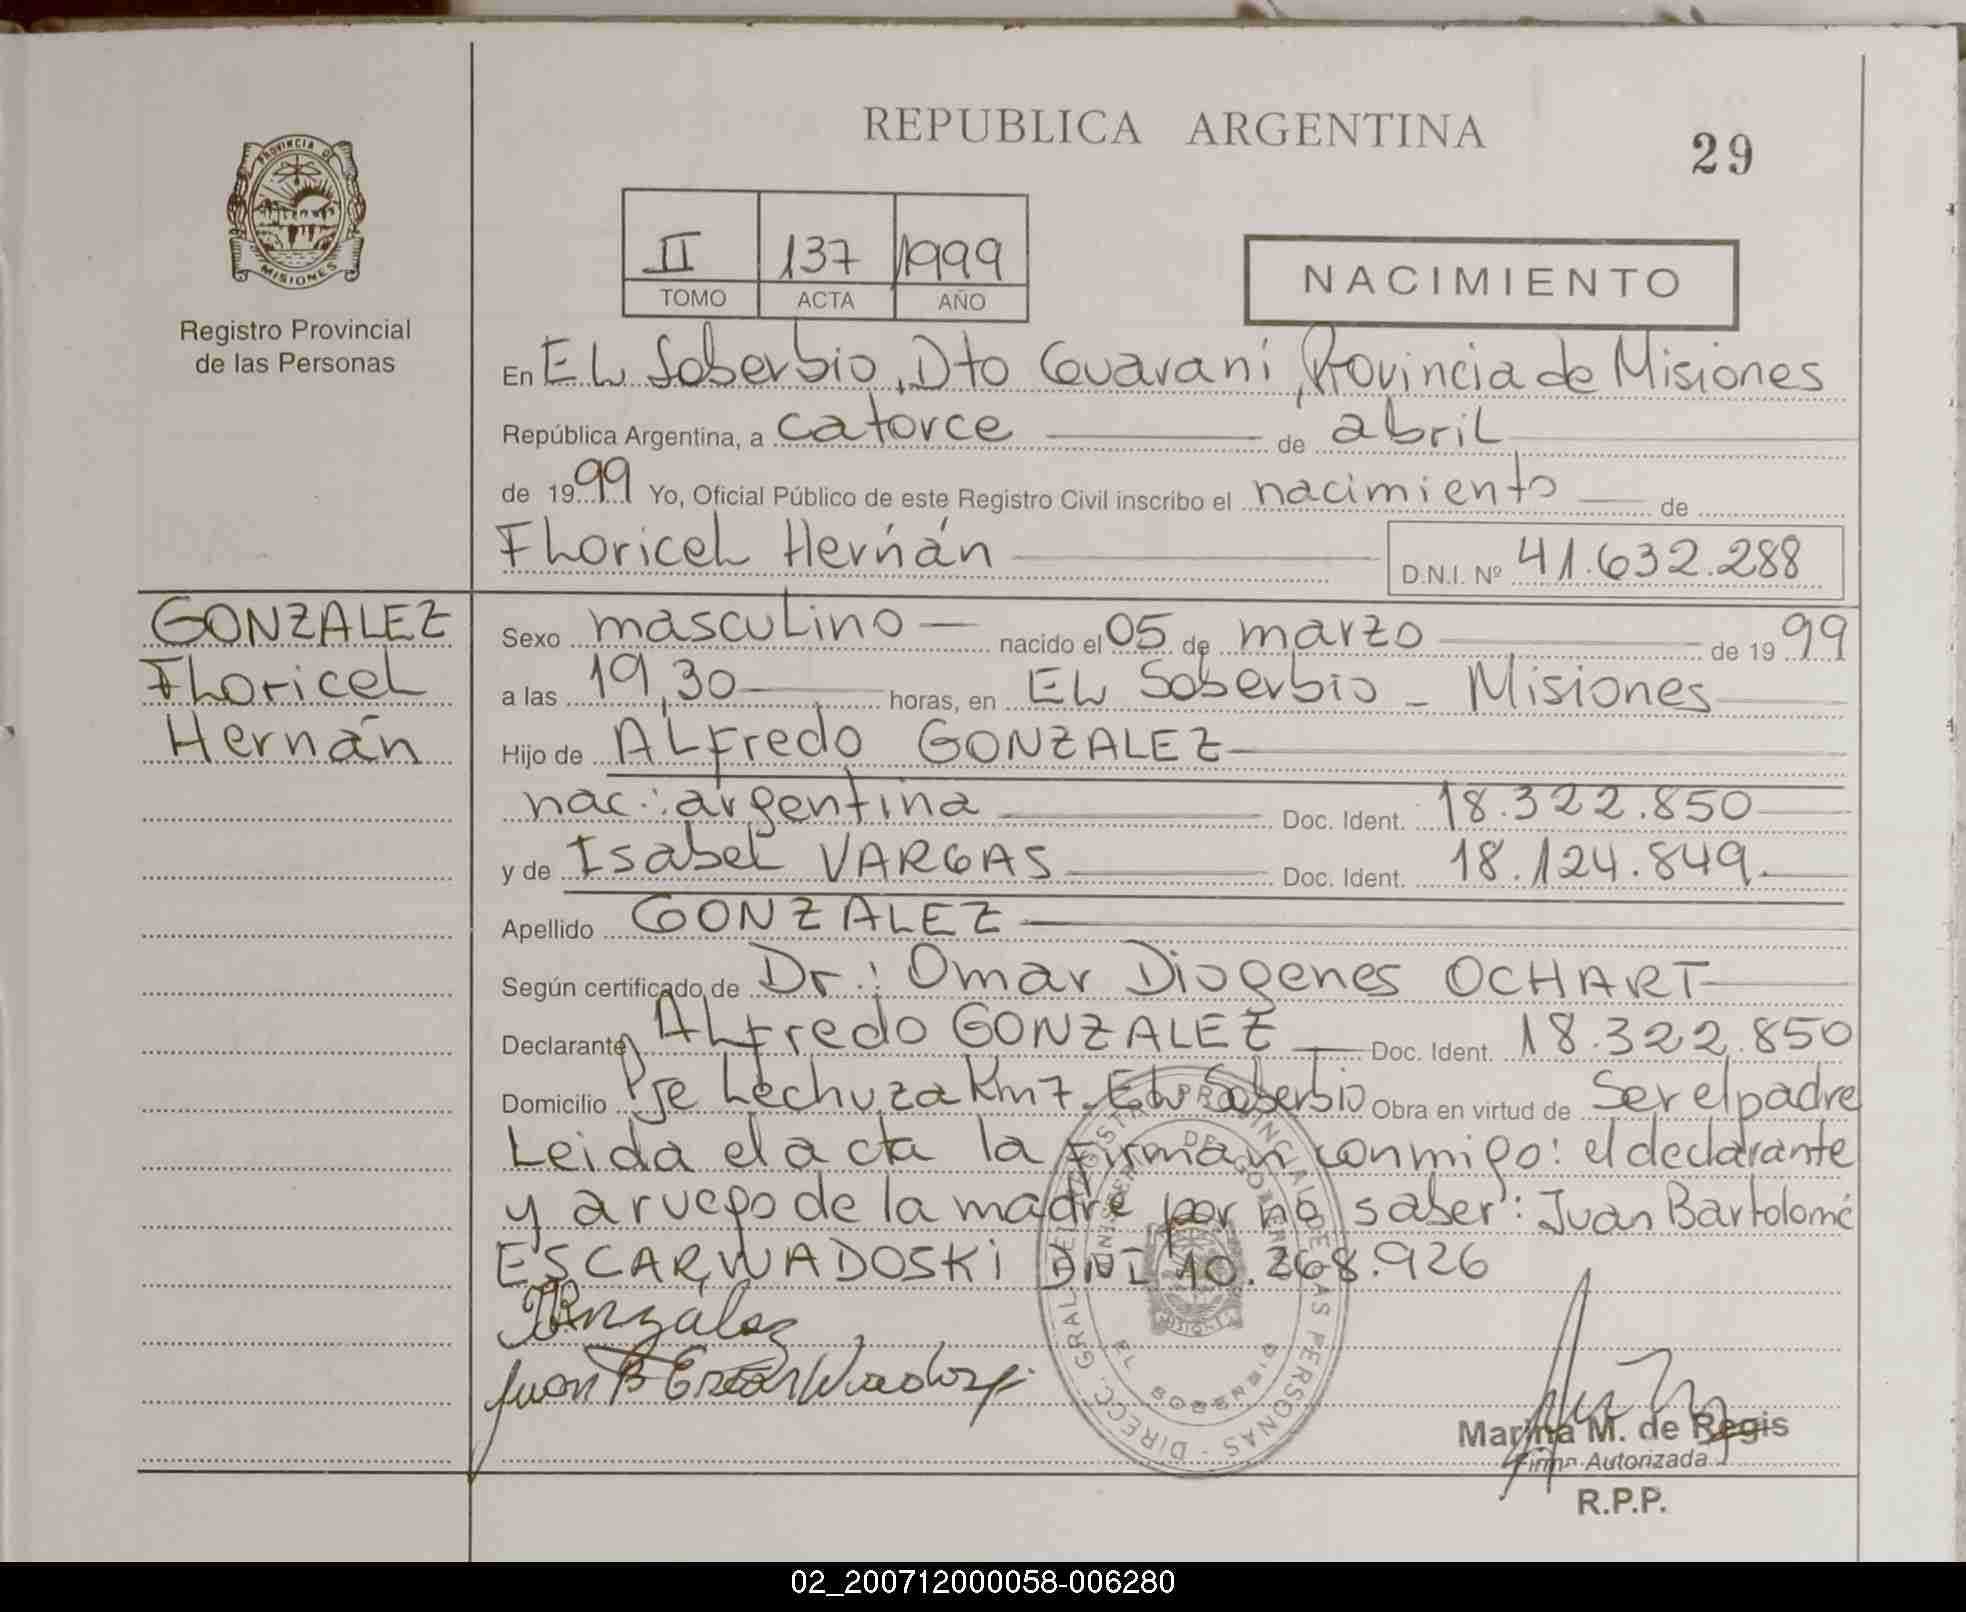 REPUBLICA ARGENTINA
29
PROVINCIA DE
MISIONES
Registro Provincial
de las Personas
II 137 1999
TOMO ACTA AÑO
NACIMIENTO
En El Soberbio, Dto Guaraní, Provincia de Misiones
República Argentina, a catorce de abril
de 1999 Yo, Oficial Público de este Registro Civil inscribo el nacimiento de
Floricel Hernán
D.N.I. Nº 41.632.288
GONZALEZ
Floricel
Hernán
Sexo masculino nacido el 05 de marzo de 1999
a las 19,30 horas, en El Soberbio - Misiones
Hijo de Alfredo GONZALEZ
nac.: argentina Doc. Ident. 18.322.850
y de Isabel VARGAS Doc. Ident. 18.124.849
Apellido GONZALEZ
Según certificado de Dr.: Omar Diogenes OCHART
Declarante Alfredo GONZALEZ Doc. Ident. 18.322.850
Domicilio Pje Lechuza Km 7. El Soberbio Obra en virtud de Ser el padre
Leida el acta la firman conmigo: el declarante
y a ruego de la madre por no saber: Juan Bartolomé
ESCARWADOSKI DNI 10.268.926
DIRECC. GRAL. DEL REGISTRO PROVINCIAL DE LAS PERSONAS
EL SOBERBIO
Marina M. de Regis
Firma Autorizada
R.P.P.
02_200712000058-006280